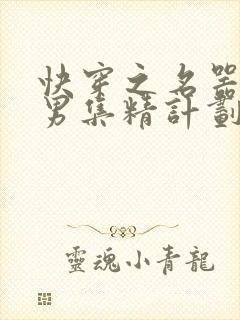 快穿之名器
男集精計劃
靈魂小青龍